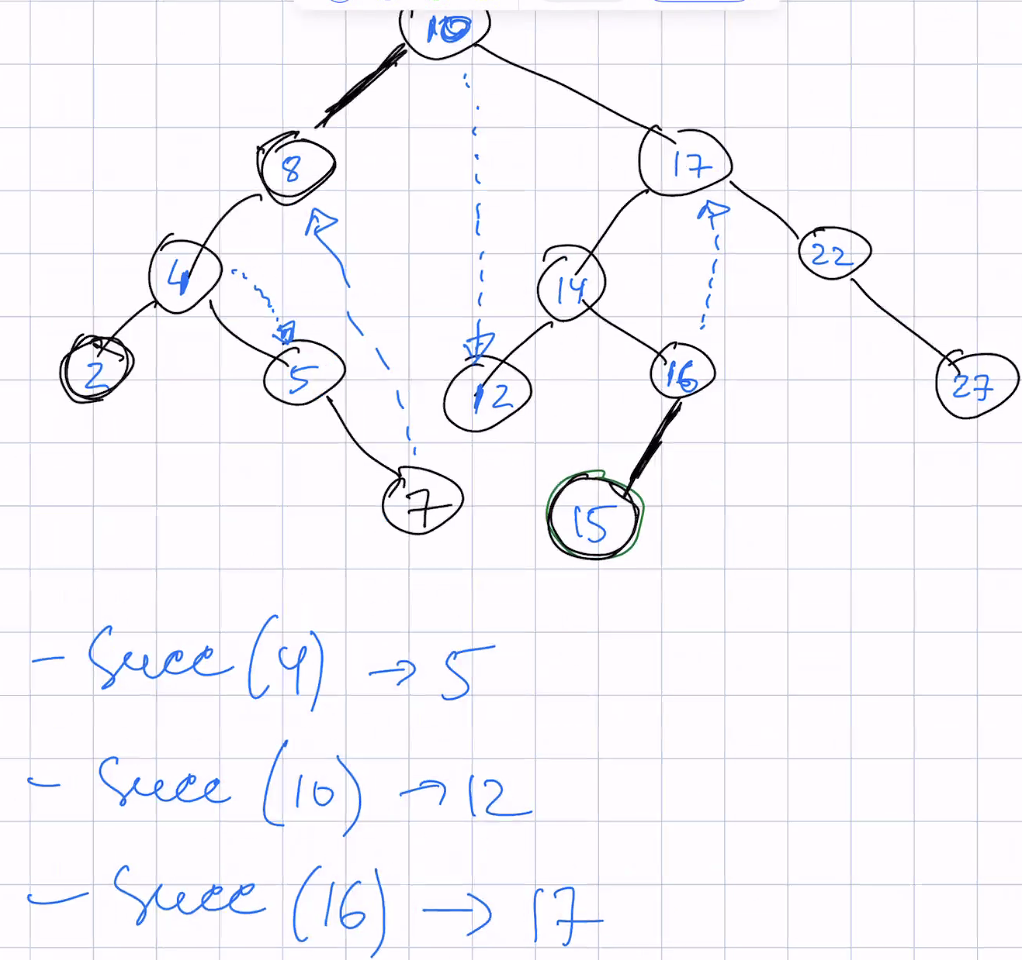 10
8 17
4 14 22
2 5 12 16 27
7 15
- Succ (4) → 5
- Succ (10) → 12
- Succ (16) → 17